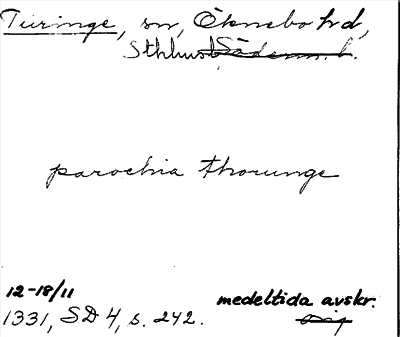 Turinge, sn, Öknebo hd,
Sthlms l. Söderm. l.
parochia thorunge
12-18/11
medeltida avskr.
1331, SD 4, s. 242.
orig